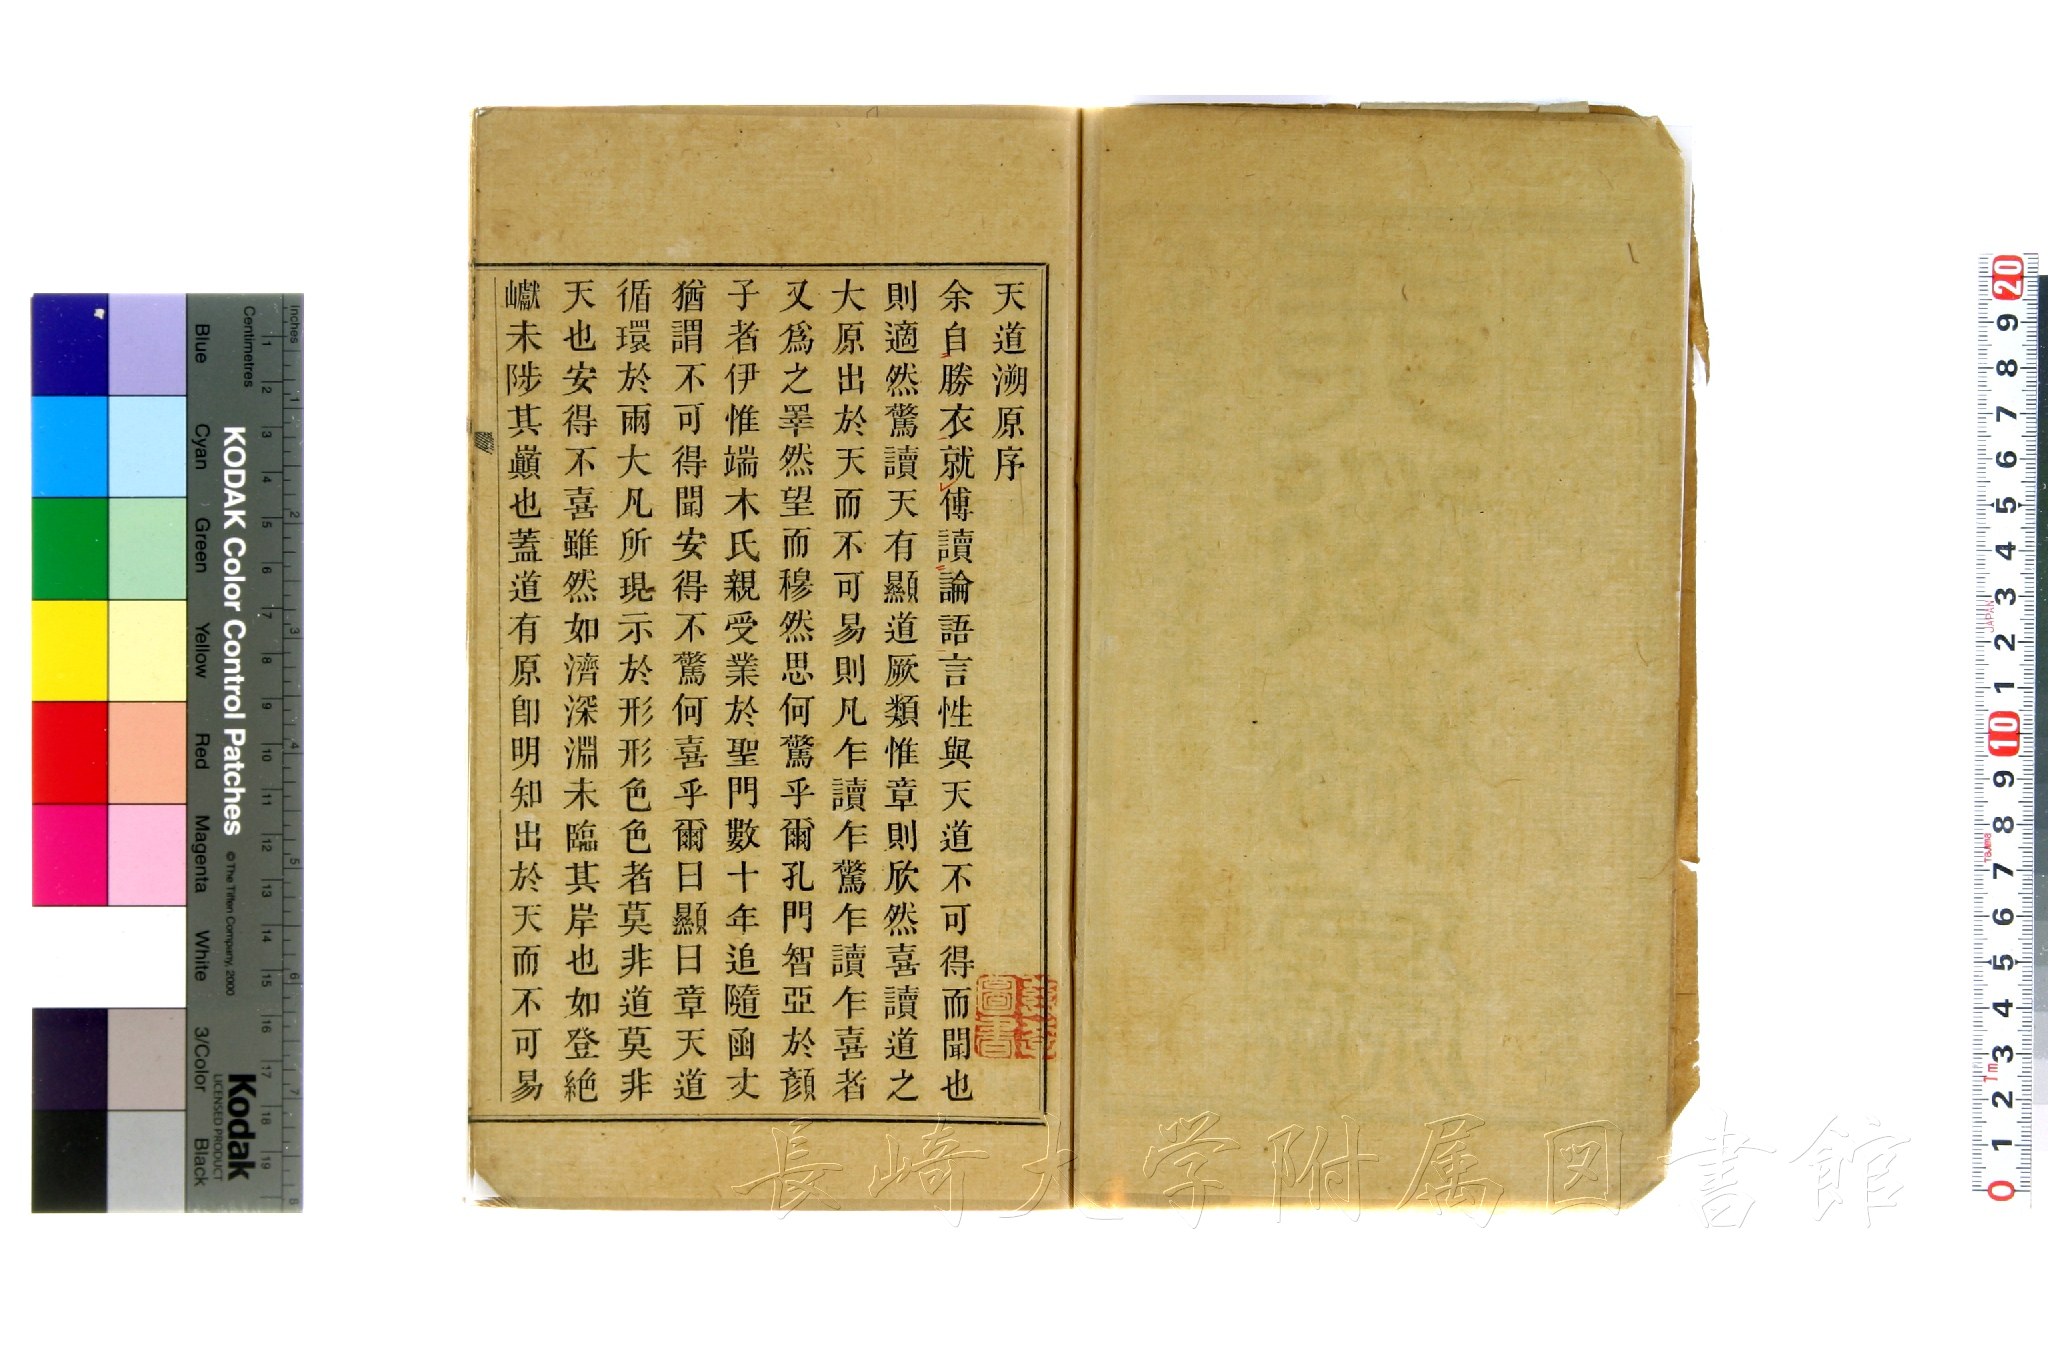 天道溯原序
余自勝衣就傅讀論語言性與天道不可得而聞也
則適然驚讀天有顯道厥類惟章則欣然喜讀道之
大原出於天而不可易則凡乍讀乍驚乍讀乍喜者
又爲之睪然望而穆然思何驚乎爾孔門智亞於顏
子者伊惟端木氏親受業於聖門數十年追隨函丈
猶謂不可得聞安得不驚何喜乎爾曰顯曰章天道
循環於兩大凡所現示於形形色色者莫非道莫非
天也安得不喜雖然如濟深淵未臨其岸也如登絶
巘未陟其巔也蓋道有原卽明知出於天而不可易
圖書
長崎大学附属図書館
KODAK Color Control Patches
© The Tiffen Company, 2000
Kodak
LICENSED PRODUCT
Inches
1 2 3 4 5 6 7 8
Centimetres
1 2 3 4 5 6 7 8 9 10 11 12 13 14 15 16 17 18 19
Blue
Cyan
Green
Yellow
Red
Magenta
White
3/Color
Black
20 9 8 7 6 5 4 3 2 1 10 9 8 7 6 5 4 3 2 1 0
JAPAN
Tajima